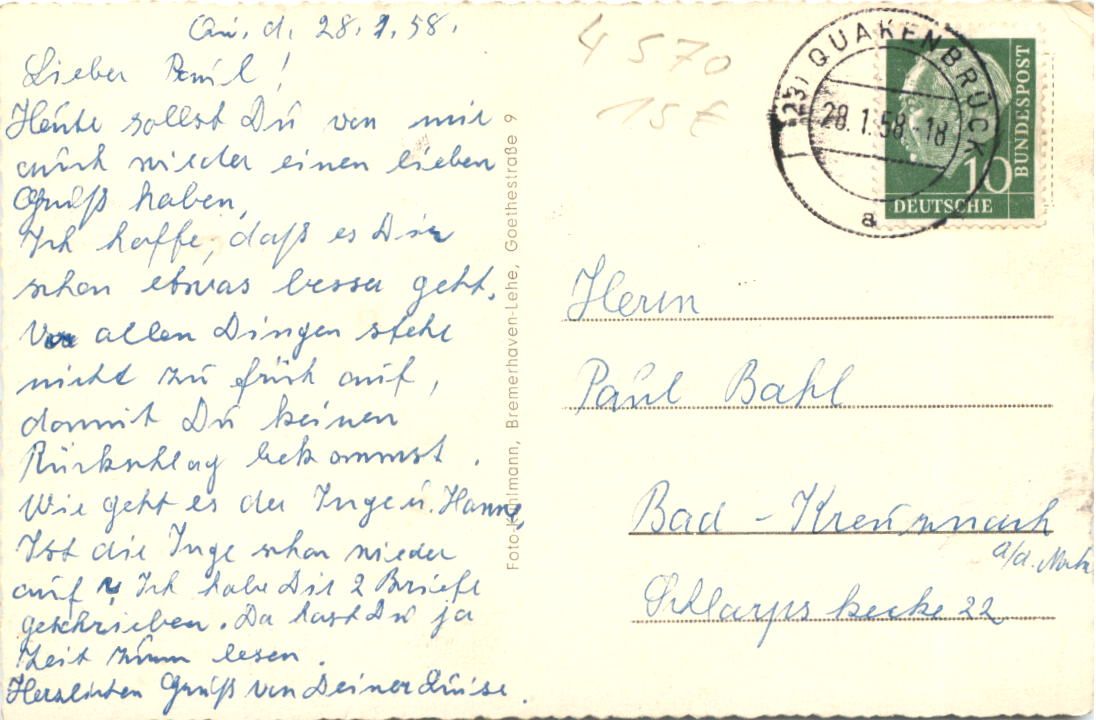 Qu. d. 28.1.58.
Lieber Paul!
Heute sollst Du von mir
auch wieder einen lieben
Gruß haben,
Ich hoffe, daß es Dir
schon etwas besser geht.
Vor allen Dingen steht
nicht zu früh auf,
damit Du keinen
Rückschlag bekommst.
Wie geht es der Inge u. Hanne,
Ist die Inge schon wieder
auf? Ich habe Dir 2 Briefe
geschrieben. Da hast Du ja
Zeit zum lesen.
Herzlichen Gruß von Deiner Luise.
Foto-Kuhlmann, Bremerhaven-Lehe, Goethestraße 9
4570
15€
(23) QUAKENBRÜCK
28.1.58.-18
a
10
DEUTSCHE
BUNDESPOST
Herrn
Paul Bahl
Bad-Kreuznach
a/d. Nahe
22